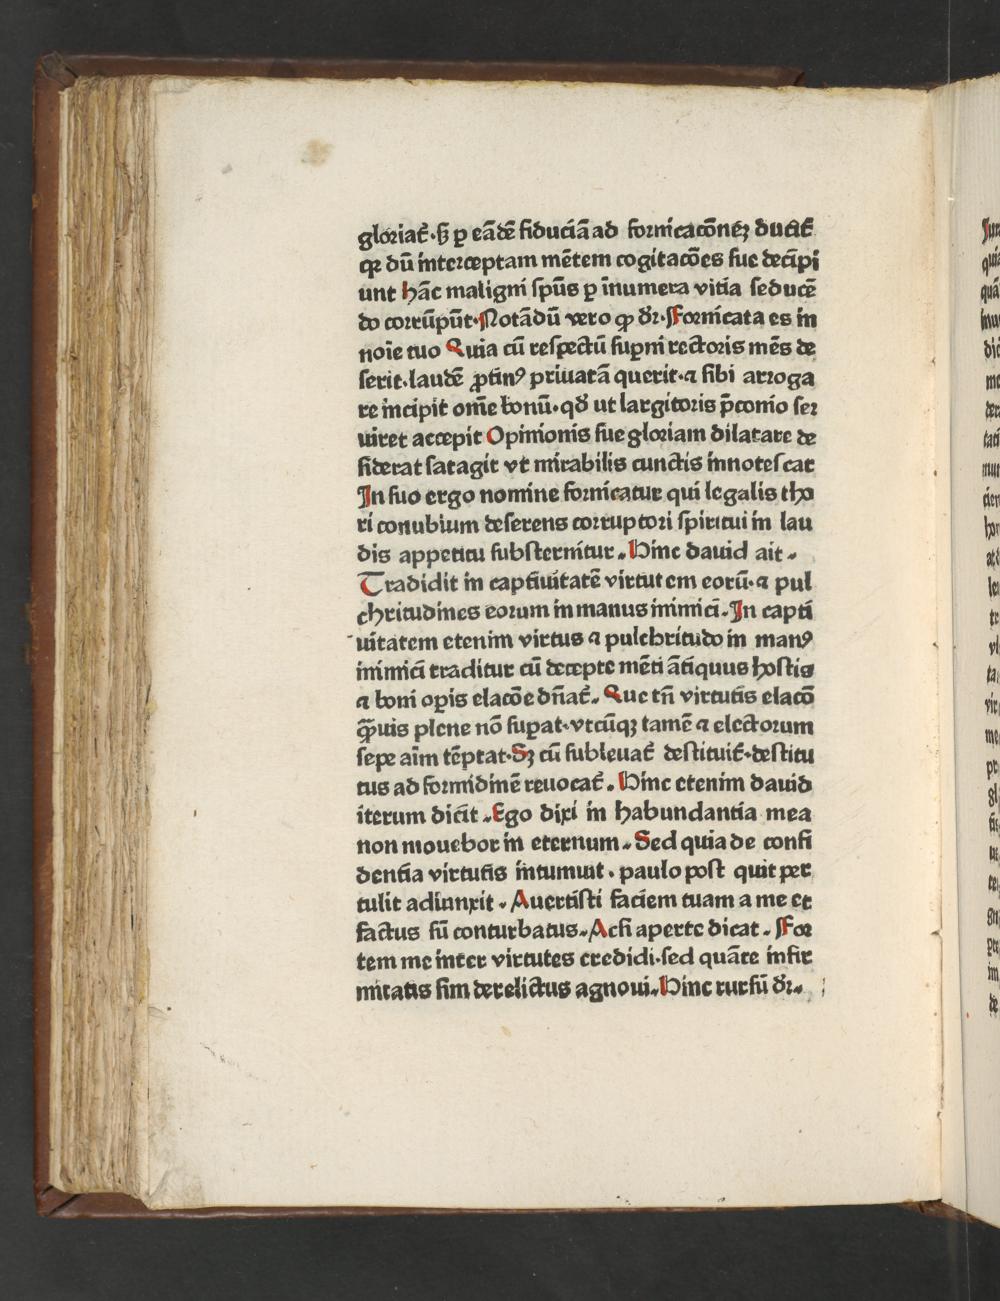 gloriat᷑·ſꝫ ꝑ eādē fiduciā ad fornicacōneꝫ ducit᷑
qꝛ dū interceptam mētem cogitacōes ſue decipi
unt hāc maligni ſpūs ꝑ īnumera vitia ſeducē
do corrūpūt·Notādū vero ꝙ dr̄·Fornicata es in
noīe tuo Quia cū reſpectū ſuꝑni rectoris mēs de
ſerit·laudē ꝓtinꝰ priuatā querit·⁊ ſibi arroga
re incipit om̄e bonū·qd̄ ut largitoris p̄conio ſer
uiret accepit Opinionis ſue gloriam dilatare de
ſiderat ſatagit vt mirabilis cunctis innoteſcat
In ſuo ergo nomine fornicatur qui legalis tho
ri conubium deſerens corruptori ſpiritui in lau
dis appetitu ſubſternitur. Hinc dauid ait.
Tradidit in captiuitatē virtutem eorū·⁊ pul
chritudines eorum in manus inimici. In capti
uitatem etenim virtus ⁊ pulchritudo in manꝰ
inimici traditur cū decepte mēti ātiquus hoſtis
⁊ boni oꝑis elacōe dn̄at᷑. Que tn̄ virtutis elacō
q̄̄uis plene nō ſuꝑat·vtcūqꝫ tamē ⁊ electorum
ſepe aīm tēptat·Sꝫ cū ſubleuat᷑ deſtituit᷑·deſtitu
tus ad formidinē reuocat᷑. Hinc etenim dauid
iterum dicit. Ego dixi in habundantia mea
non mouebor in eternum. Sed quia de confi
dentia virtutis intumuit. paulo poſt quit per
tulit adiunxit. Auertiſti faciem tuam a me et
factus ſū conturbatus. Acſi aperte dicat. For
tem me inter virtutes credidi·ſed quāte infir
mitatis ſim derelictus agnoui. Hinc rurſū dr̄.